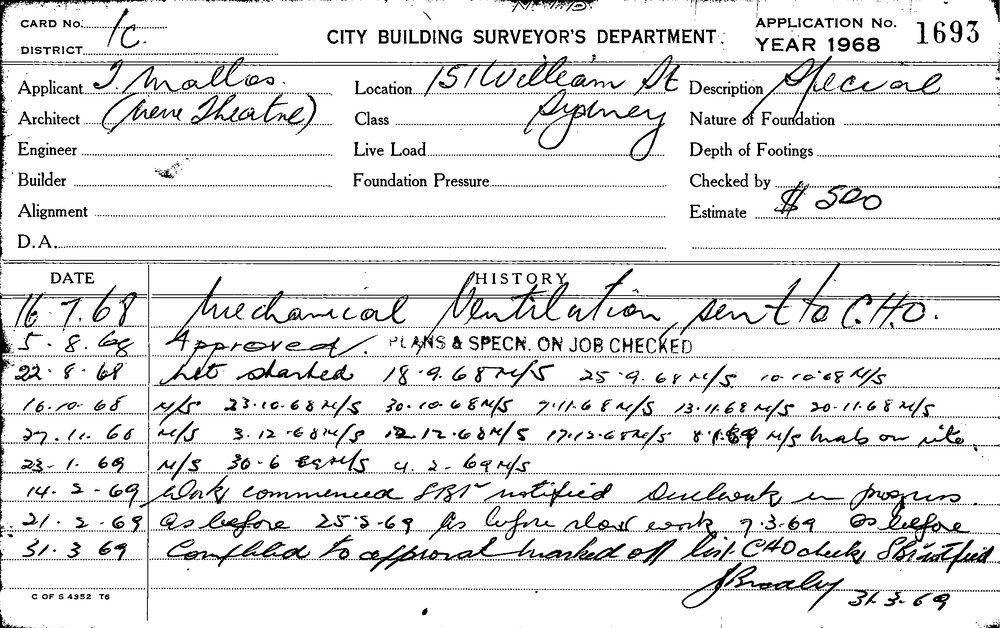 CARD No. 1c.
DISTRICT
CITY BUILDING SURVEYOR'S DEPARTMENT
APPLICATION No. 1693
YEAR 1968
Applicant J Mallos. Location 151 William St Description Special
Architect (Theatre) Class Sydney Nature of Foundation
Engineer Live Load Depth of Footings
Builder Foundation Pressure Checked by
Alignment Estimate $ 500
D.A.
DATE HISTORY
16.7.68 Mechanical Ventilation, sent to C.H.O.
5.8.68 Approved. PLANS & SPECN. ON JOB CHECKED
22.8.68 Not started 18.9.68 N/S 25.9.68 N/S 10.10.68 N/S
16.10.68 N/S 23.10.68 N/S 30.10.68 N/S 7.11.68 N/S 13.11.68 N/S 20.11.68 N/S
27.11.68 N/S 3.12.68 N/S 12.12.68 N/S 17.12.68 N/S 8.1.69 N/S on site.
23.1.69 N/S 30.6 69 N/S 4.2.69 N/S
14.2.69 Work commenced notified Ductwork in progress.
21.2.69 As before 25.2.69 As before slow work 7.3.69 As before
31.3.69 Completed to approval marked off list. CHO checks
31.3.69
C OF S 4352 T6